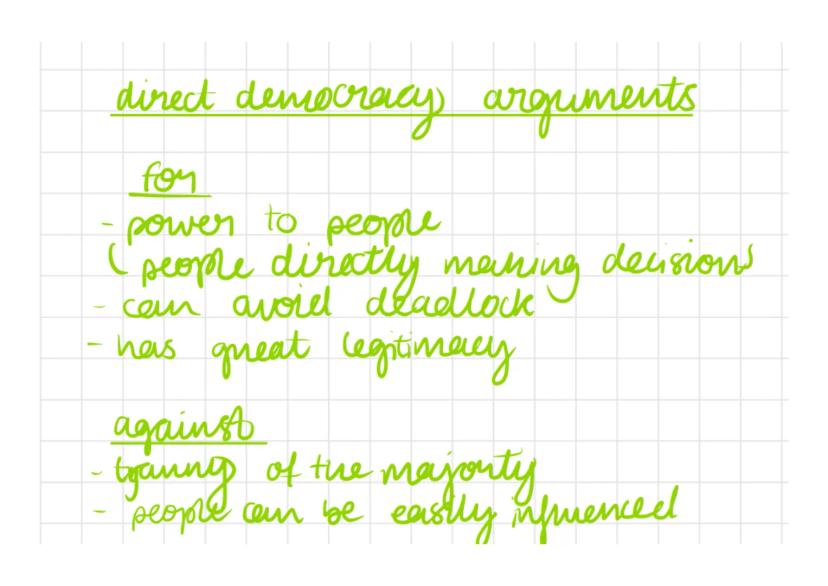 direct democracy arguments
for
- power to people
( people directly making decisions
- can avoid deadlock
- has great legitimacy
against
- tyranny of the majority
- people can be easily influenced